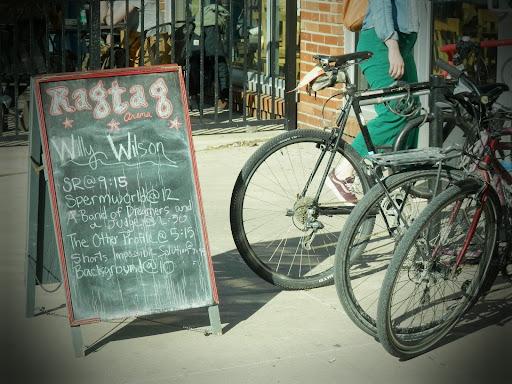 Ragtag
Arena
Willy Wilson
SR@9:15
Spermworld@12
A Band of Dreamers and
a Judge@2:30
The Other Profile@5:15
Shorts Impossible Solutions@
Background@10